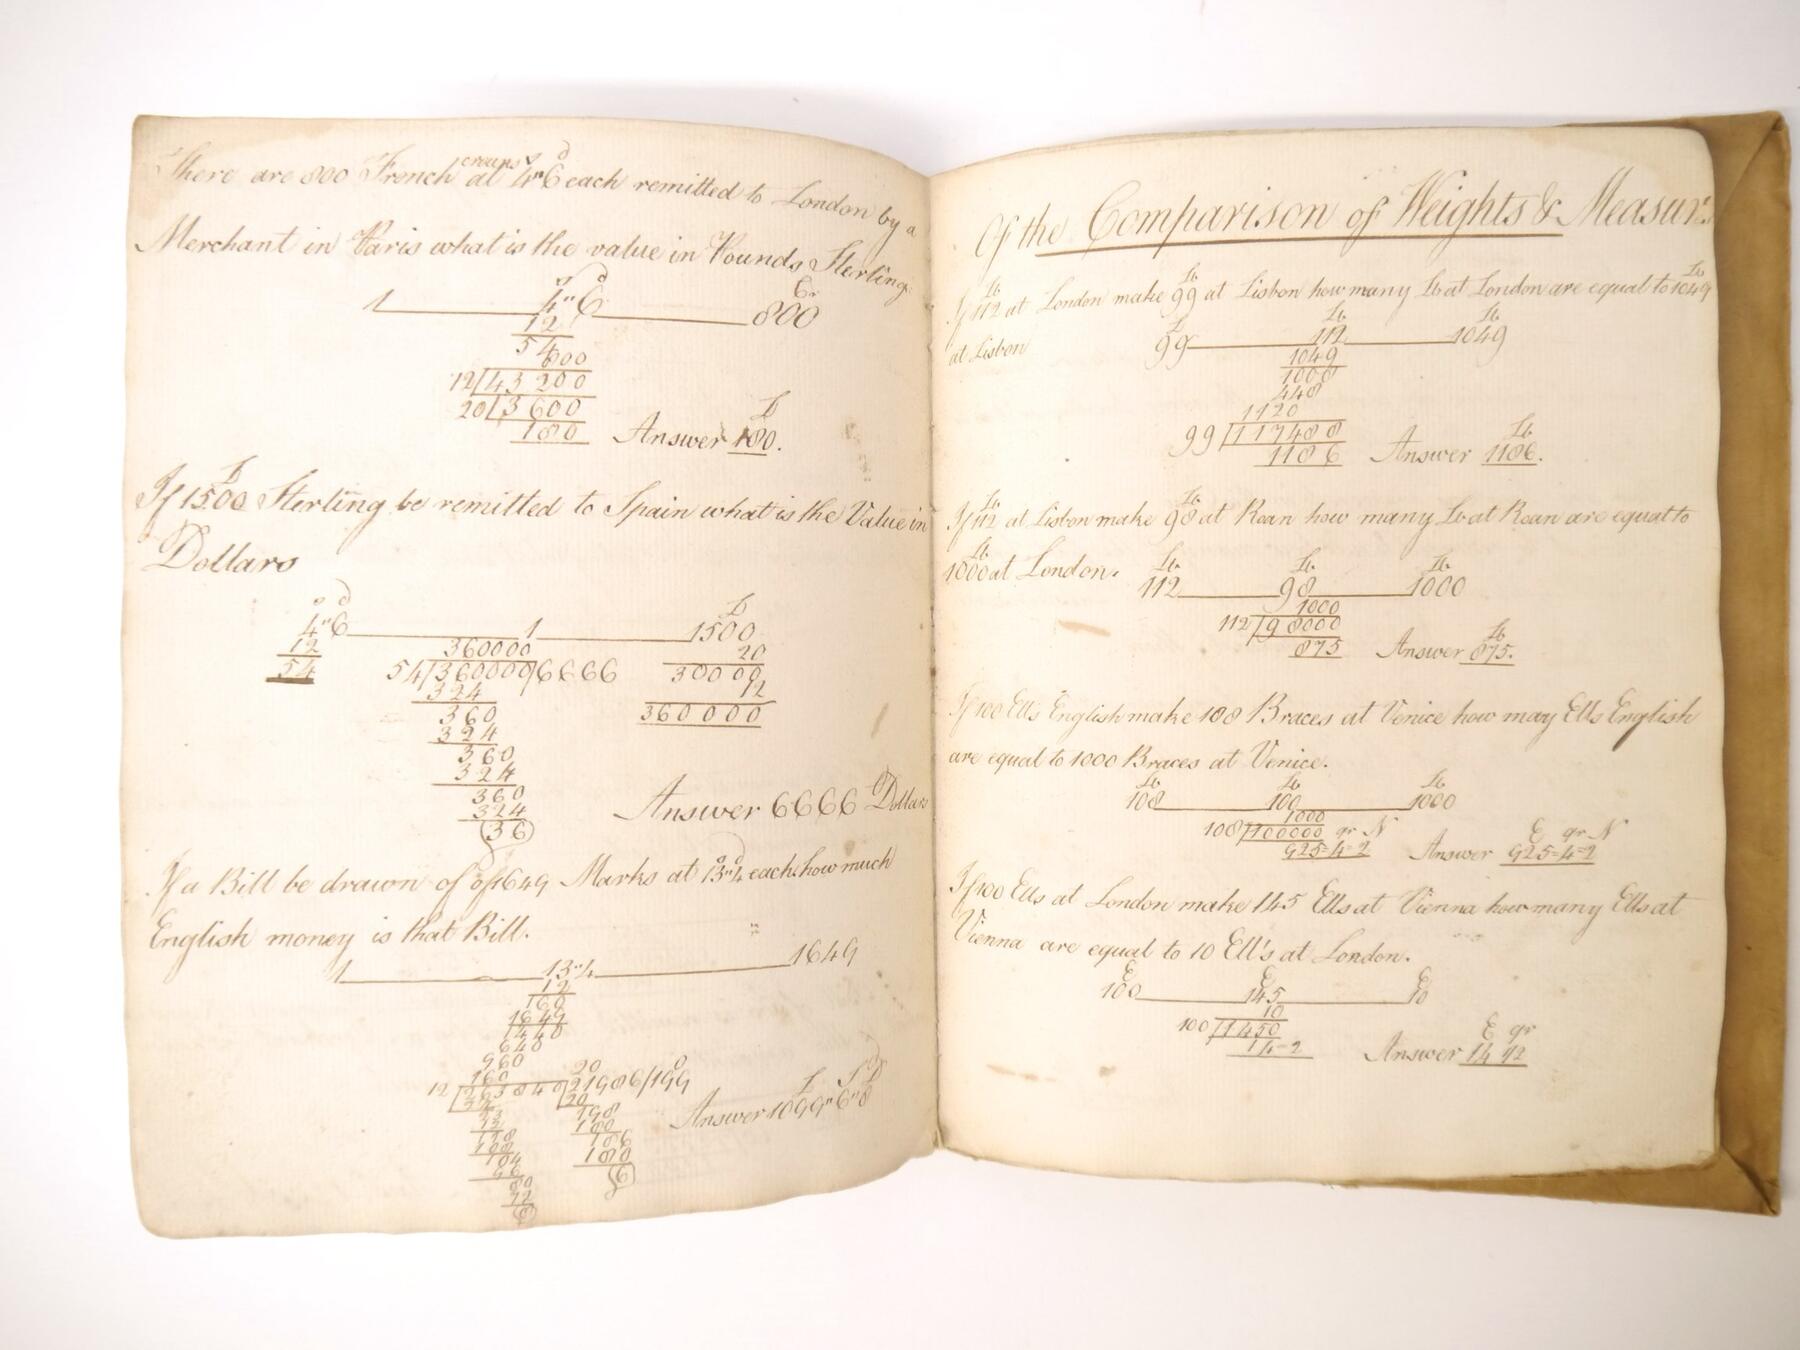 There are 800 French crowns at 4"6 each remitted to London by a
Merchant in Paris what is the value in Pounds Sterling
s d Cr
1 4"6 800
12
54
800
12/43200
20/3600
180 Answer £180.
If £1500 Sterling be remitted to Spain what is the Value in
Dollars
s d £
4"6 1 1500
12 360000 20
54 54/360000/6666 30000
324 12
360 360000
324
360
324
360
324
36
Answer 6666 Dollars
If a Bill be drawn of of 1649 Marks at 13"4 each how much
English money is that Bill.
1 13"4 1649
12
160
1649
1440
640
960
160 20
12/263840/21986/1099
24 20
23 198
12 180
118 186
108 180
104 6
96
80
72
8
£ S D
Answer 1099"6"8
Of the Comparison of Weights & Measur
If 112 lb at London make 99 lb at Lisbon how many lb at London are equal to 1049 lb
at Lisbon
99 112 1049
1049
1008
448
1120
99/117488
1186 Answer 1186.
If 112 lb at Lisbon make 98 lb at Roan how many lb at Roan are equal to
1000 lb at London.
112 98 1000
1000
112/98000
875 Answer 875.
If 100 Ells English make 108 Braces at Venice how may Ells English
are equal to 1000 Braces at Venice.
108 100 1000
1000
108/100000 qr N E qr N
925=4=2 Answer 925=4=2
If 100 Ells at London make 145 Ells at Vienna how many Ells at
Vienna are equal to 10 Ell's at London.
E E E
100 145 10
10
100/1450 E qr
14=2 Answer 14 2